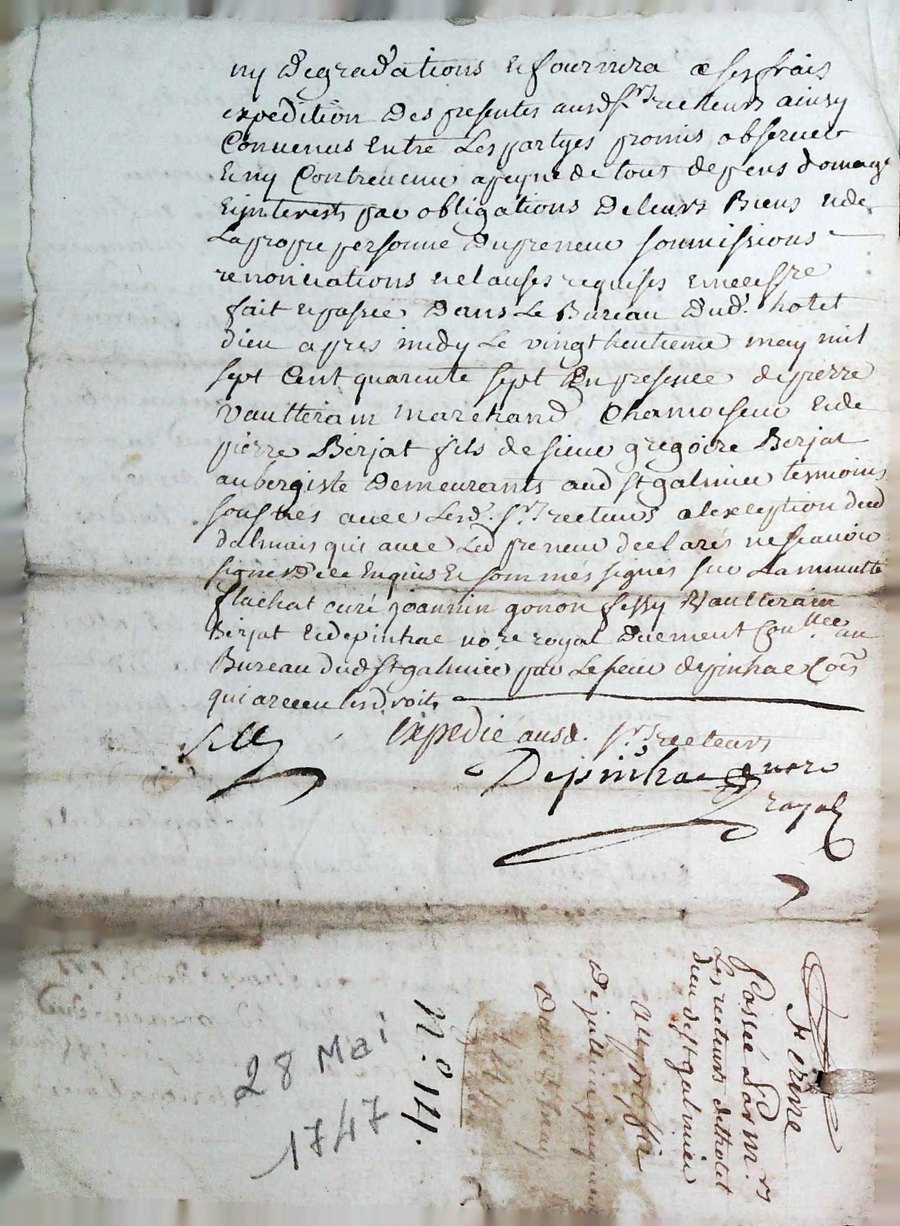 ny degradations et fournira a ses frais
expedition des presentes ausd. srs recteurs ainsy
Convenus Entre Les partyes promis observer
Et ny Contrevenir a peyne de tous depens domage
Et interests par obligations de leurs Biens et de
La propre personne du preneur soumissions
renonciations et clauses requises
fait et passé dans Le Bureau dud. hotel
dieu apres midy Le vingt huitieme may mil
sept Cent quarente sept En presence de pierre
Vaulteram marchand Chamoiseur et de
pierre Berjat fils de sieur gregoire Berjat
aubergiste demeurants aud st galmier temoins
avec Lesd. srs recteurs a lexception dud
dalmais qui avec Led preneur declares ne scavoir
signer de ce Enquis et sommés signés sur La minutte
flachat curé joannin gonon fessy Vaulteram
Berjat et depinhac nore royal duement Con.llee au
Bureau dud St galmier par Le sieur depinhac
qui a receu les droits
expedie ausd. srs recteurs
Depinhac nore
royal
ferme
Passée Par mrs
Les recteurs de hotel
dieu de st galmier
De juillet
Du 28 may
N.° 14.
28 Mai
1747